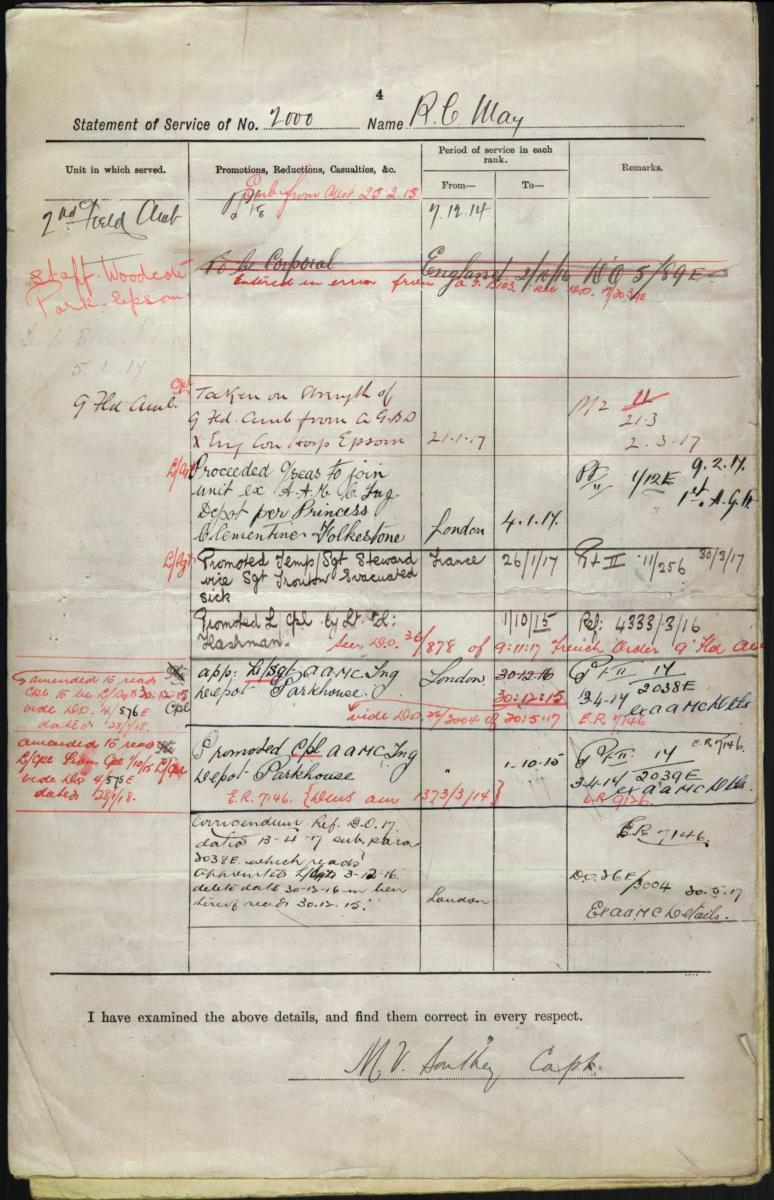 4
Statement of Service of No. 2000 Name R. C. May
Unit in which served.
Promotions, Reductions, Casualties, &c.
Period of service in each rank.
From—
To—
Remarks.
from 25.2.15
2nd Field Amb
7.12.14
Staff Woodcote
Park Epsom
To be Corporal England 2/10/16 DO 5/89E
Entered in error from A.F. B103. see D.O.
5.1.17
9 Fld Amb.
Cpl
Taken on Strength of
9 Fld. Amb from A G.B.D
X Eng Con Hosp Epsom
21.1.17
Pt 2 11
21.3
2.3.17
L/Sgt
Proceeded O/seas to join
unit ex A.A.M.C. Tng
Depot per Princess
Clementine Folkestone
London
4.1.17.
1/12E 9.2.17.
1st. A.G.H.
L/Sgt
Promoted Temp/Sgt Steward
vice Sgt Evacuated
sick
France
26/1/17
Pt II 11/256 30/3/17
Promoted L/Cpl by Lt. Col:
1/10/15
Ref: 4333/3/16
See D.O. 36/878 of 9:11:17 French Order 9 Fld Amb
amended to read
Cpl to be L/Sgt 30.12.15
vide D.O. 4/576E
dated 28/1/18.
Cpl
app: L/Sgt AAMC Tng
Depot Parkhouse.
London
30.12.16
30:12:15
Pt II 14
3.4.17 2038E
ex AAMC Dtls
vide D.O. 26/3004 of 30:5:17
E.R. 7146
amended to read
L/Cpl from Cpl 1/10/15
vide D.O. 4/575E
dated 28/1/18.
L/Cpl
Promoted Cpl AAMC Tng
Depot Parkhouse
"
1.10.15
Pt II 14 E.R 7146.
3.4.17 2039E
ex AAMC Dtls.
E.R. 7146. 1373/3/14}
Corrigendum Ref. D.O. 17.
dated 13-4-17 sub. para
2038E which reads
Appointed L/Sgt 3-12-16.
delete date 30-12-16 in lieu
thereof reads 30.12.15."
London
E.R 7146.
D.O. 26E/3004 30.5.17
Ex AAMC Details.
I have examined the above details, and find them correct in every respect.
M. V. Southey Capt.